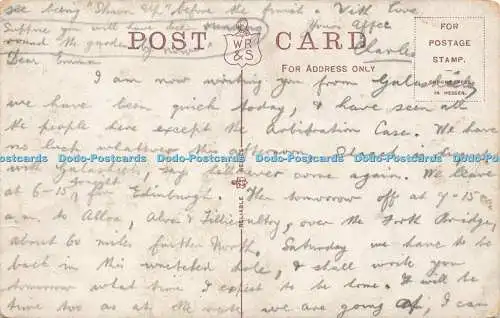 see being "Shewn Up" before the finish. With Love
Suppose you will have been running Yours Affec
round the garden by now. Charles
POST CARD
W.R. & S
FOR ADDRESS ONLY
FOR POSTAGE STAMP.
IN HESSEN.
RELIABLE
Dear Emma
I am now writing you from Galashiels
we have been quick today, & have seen all
the people here except the Arbitration Case. We have
no luck whatever this afternoon.
with Galashiels, say I'll never come again. We leave
at 6-15, tonight for Edinburgh. Then tomorrow off at 7-15
a.m. to Alloa, Alva & Tillicoultry, over the Forth Bridge,
about 60 miles further North. Saturday we have to be
back in this wretched hole, & shall work you
tomorrow what time I expect to be home. It will be
time two as at the rate we are going of, I can
Dodo-Postcards Dodo-Postcards Dodo-Postcards Dodo-Postcards Dodo-Postcards Dodo-Postcards